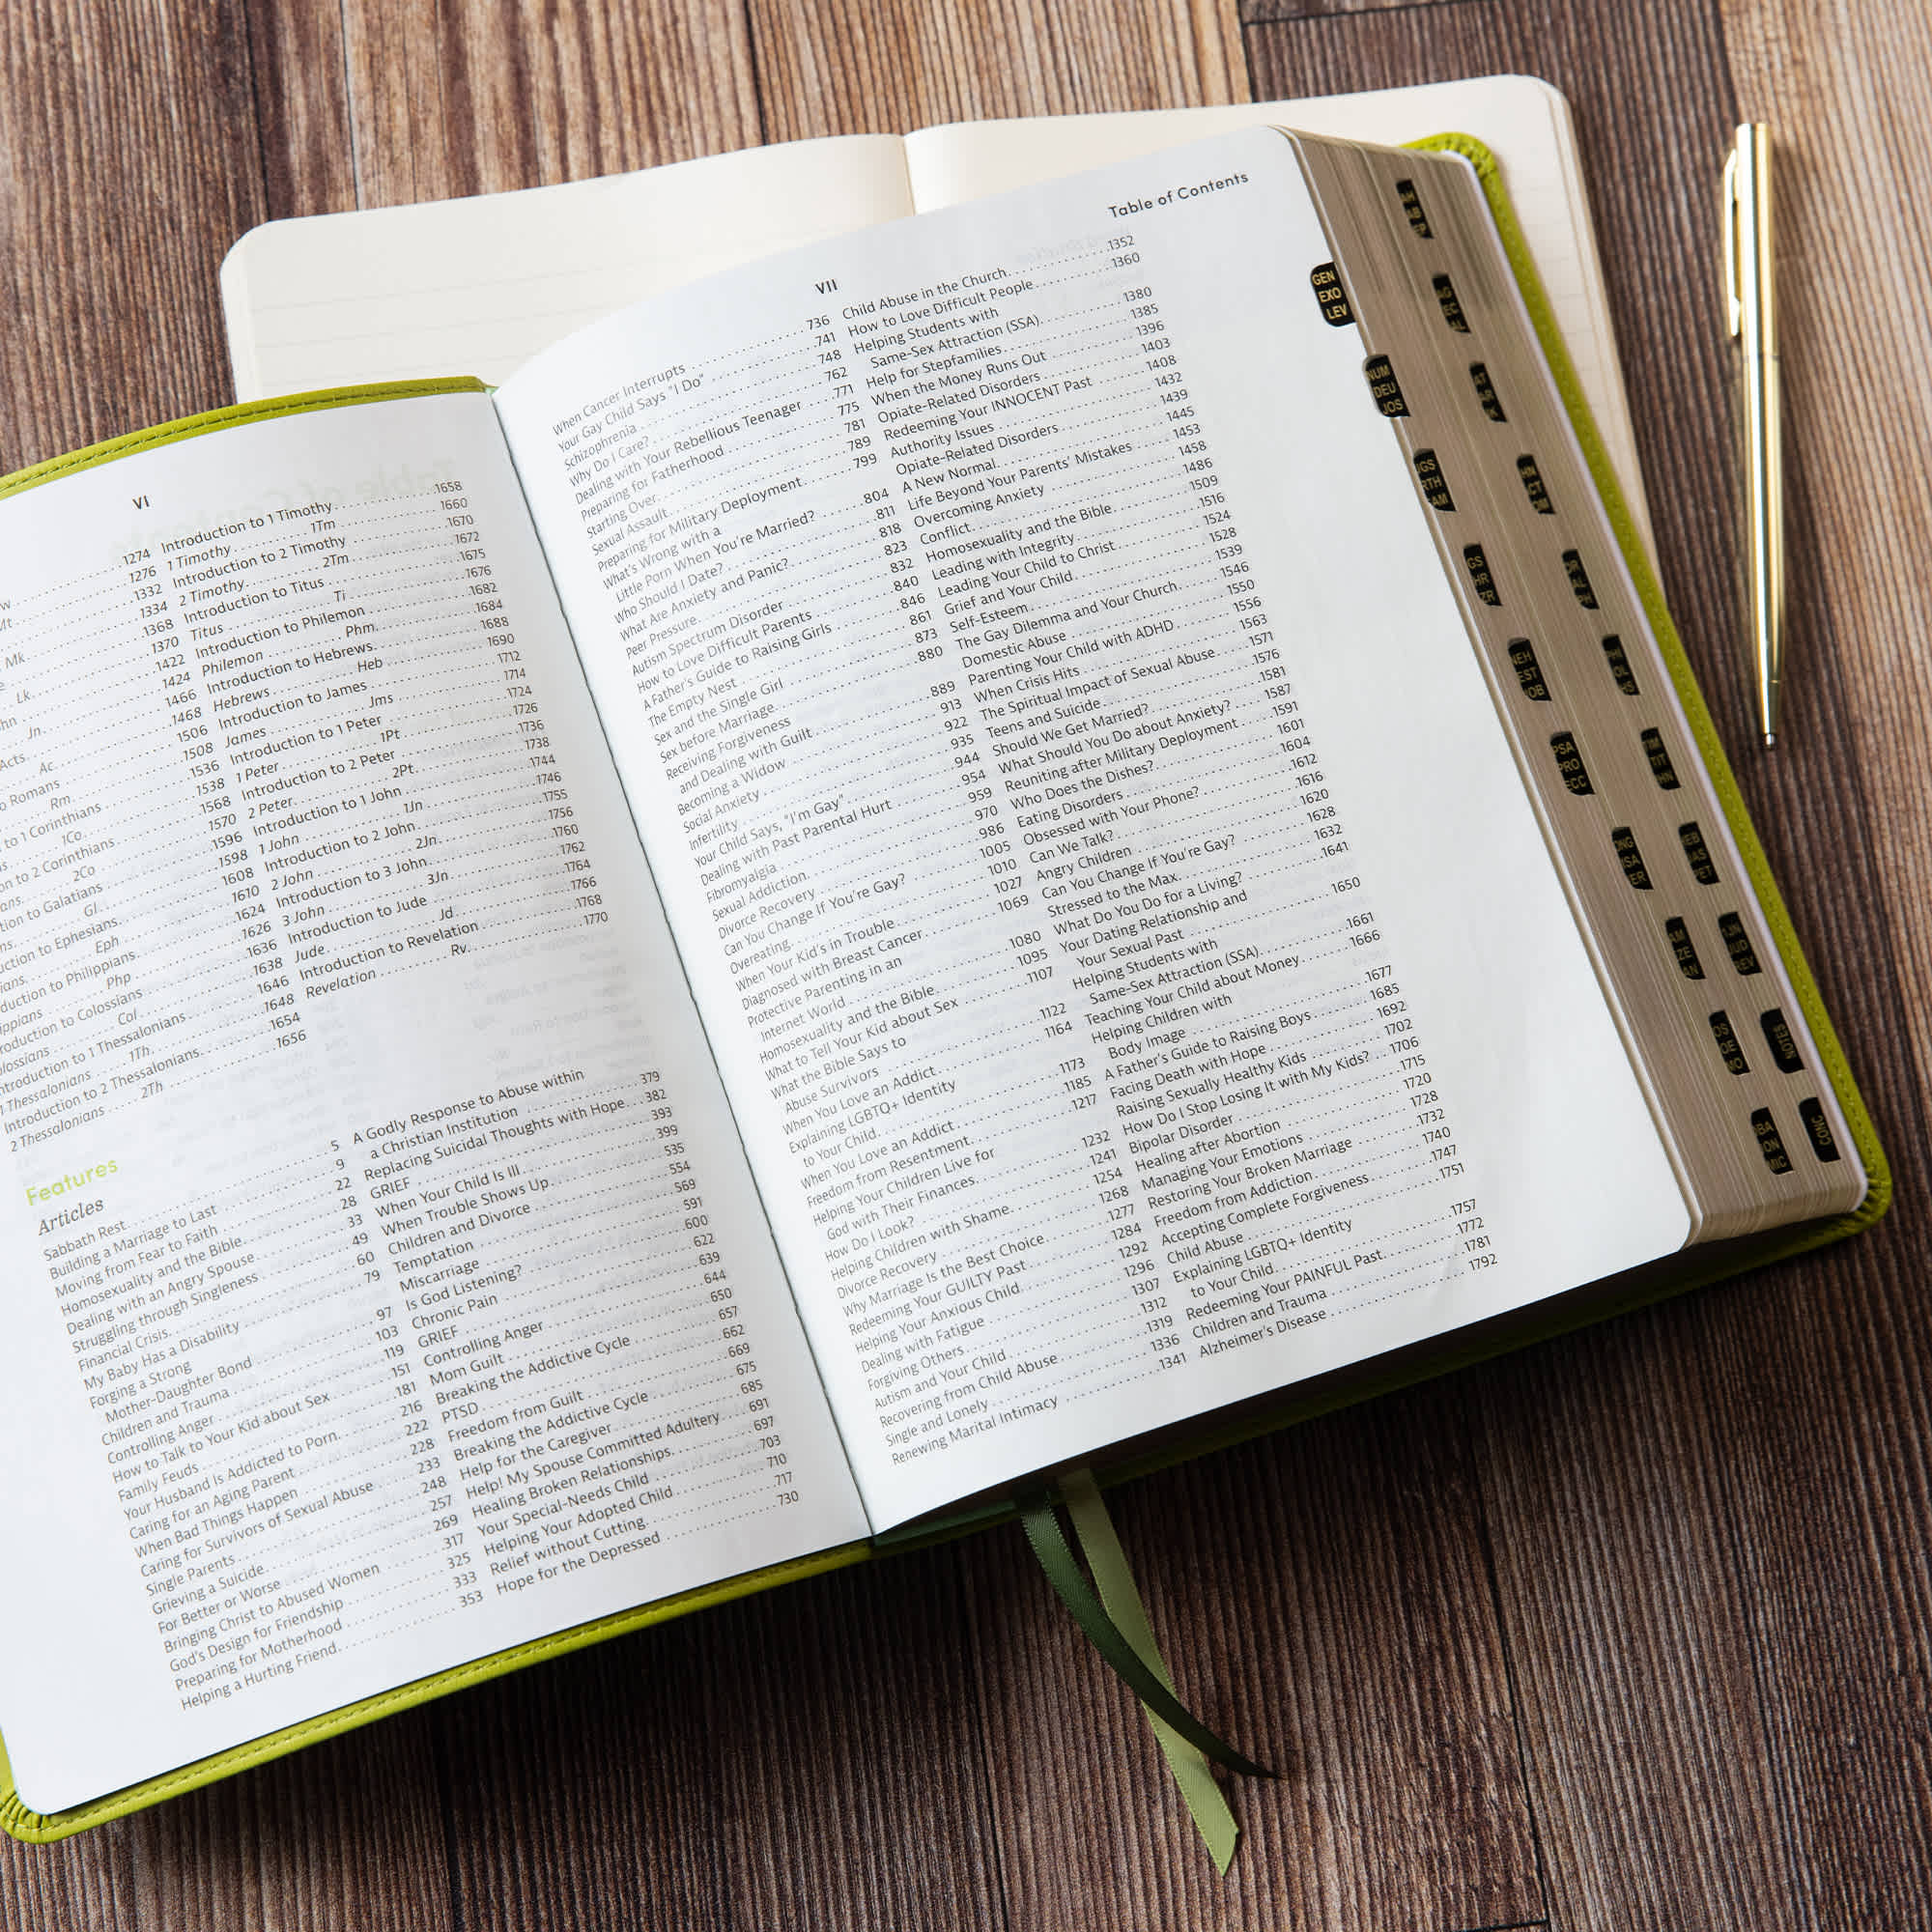 VI
1274
1276
1332
1334
1368
1370
1422
1424
1466
1468
1506
1508
1536
1538
1568
1570
1596
1598
1608
1610
1624
1626
1636
1638
1646
1648
1654
1656
Mt
Mk
Lk
Jn
Acts
Ac
Romans
Rm
to 1 Corinthians
1Co
to 2 Corinthians
2Co
to Galatians
Gl
to Ephesians
Eph
to Philippians
Php
to Colossians
Col
Introduction to 1 Thessalonians
1 Thessalonians 1Th
Introduction to 2 Thessalonians
2 Thessalonians 2Th
Introduction to 1 Timothy 1658
1 Timothy 1Tm 1660
Introduction to 2 Timothy 1670
2 Timothy 2Tm 1672
Introduction to Titus 1675
Titus Ti 1676
Introduction to Philemon 1682
Philemon Phm 1684
Introduction to Hebrews 1688
Hebrews Heb 1690
Introduction to James 1712
James Jms 1714
Introduction to 1 Peter 1724
1 Peter 1Pt 1726
Introduction to 2 Peter 1736
2 Peter 2Pt 1738
Introduction to 1 John 1744
1 John 1Jn 1746
Introduction to 2 John 1755
2 John 2Jn 1756
Introduction to 3 John 1760
3 John 3Jn 1762
Introduction to Jude 1764
Jude Jd 1766
Introduction to Revelation 1768
Revelation Rv 1770
Features
Articles
Sabbath Rest 5
Building a Marriage to Last 9
Moving from Fear to Faith 22
Homosexuality and the Bible 28
Dealing with an Angry Spouse 33
Struggling through Singleness 49
Financial Crisis 60
My Baby Has a Disability 79
Forging a Strong
Mother-Daughter Bond 97
Children and Trauma 103
Controlling Anger 119
How to Talk to Your Kid about Sex 151
Family Feuds 181
Your Husband Is Addicted to Porn 216
Caring for an Aging Parent 222
When Bad Things Happen 228
Caring for Survivors of Sexual Abuse 233
Single Parents 248
Grieving a Suicide 257
For Better or Worse 269
Bringing Christ to Abused Women 317
God's Design for Friendship 325
Preparing for Motherhood 333
Helping a Hurting Friend 353
A Godly Response to Abuse within
a Christian Institution 379
Replacing Suicidal Thoughts with Hope 382
GRIEF 393
When Your Child Is Ill 399
When Trouble Shows Up 535
Children and Divorce 554
Temptation 569
Miscarriage 591
Is God Listening? 600
Chronic Pain 622
GRIEF 639
Controlling Anger 644
Mom Guilt 650
Breaking the Addictive Cycle 657
PTSD 662
Freedom from Guilt 669
Breaking the Addictive Cycle 675
Help for the Caregiver 685
Help! My Spouse Committed Adultery 691
Healing Broken Relationships 697
Your Special-Needs Child 703
Helping Your Adopted Child 710
Relief without Cutting 717
Hope for the Depressed 730
VII
Table of Contents
When Cancer Interrupts 736
Your Gay Child Says "I Do" 741
Schizophrenia 748
Why Do I Care? 762
Dealing with Your Rebellious Teenager 771
Preparing for Fatherhood 775
Starting Over 781
Sexual Assault 789
Preparing for Military Deployment 799
What's Wrong with a
Little Porn When You're Married? 804
Who Should I Date? 811
What Are Anxiety and Panic? 818
Peer Pressure 823
Autism Spectrum Disorder 832
How to Love Difficult Parents 840
A Father's Guide to Raising Girls 846
The Empty Nest 861
Sex and the Single Girl 873
Sex before Marriage 880
Receiving Forgiveness
and Dealing with Guilt 889
Becoming a Widow 913
Social Anxiety 922
Infertility 935
Your Child Says, "I'm Gay" 944
Dealing with Past Parental Hurt 954
Fibromyalgia 959
Sexual Addiction 970
Divorce Recovery 986
Can You Change If You're Gay? 1005
Overeating 1010
When Your Kid's in Trouble 1027
Diagnosed with Breast Cancer 1069
Protective Parenting in an
Internet World 1080
Homosexuality and the Bible 1095
What to Tell Your Kid about Sex 1107
What the Bible Says to
Abuse Survivors 1122
When You Love an Addict 1164
Explaining LGBTQ+ Identity
to Your Child 1173
When You Love an Addict 1185
Freedom from Resentment 1217
Helping Your Children Live for
God with Their Finances 1232
How Do I Look? 1241
Helping Children with Shame 1254
Divorce Recovery 1268
Why Marriage Is the Best Choice 1277
Redeeming Your GUILTY Past 1284
Helping Your Anxious Child 1292
Dealing with Fatigue 1296
Forgiving Others 1307
Autism and Your Child 1312
Recovering from Child Abuse 1319
Single and Lonely 1336
Renewing Marital Intimacy 1341
Child Abuse in the Church 1352
How to Love Difficult People 1360
Helping Students with
Same-Sex Attraction (SSA) 1380
Help for Stepfamilies 1385
When the Money Runs Out 1396
Opiate-Related Disorders 1403
Redeeming Your INNOCENT Past 1408
Authority Issues 1432
Opiate-Related Disorders 1439
A New Normal 1445
Life Beyond Your Parents' Mistakes 1453
Overcoming Anxiety 1458
Conflict 1486
Homosexuality and the Bible 1509
Leading with Integrity 1516
Leading Your Child to Christ 1524
Grief and Your Child 1528
Self-Esteem 1539
The Gay Dilemma and Your Church 1546
Domestic Abuse 1550
Parenting Your Child with ADHD 1556
When Crisis Hits 1563
The Spiritual Impact of Sexual Abuse 1571
Teens and Suicide 1576
Should We Get Married? 1581
What Should You Do about Anxiety? 1587
Reuniting after Military Deployment 1591
Who Does the Dishes? 1601
Eating Disorders 1604
Obsessed with Your Phone? 1612
Can We Talk? 1616
Angry Children 1620
Can You Change If You're Gay? 1628
Stressed to the Max 1632
What Do You Do for a Living? 1641
Your Dating Relationship and
Your Sexual Past 1650
Helping Students with
Same-Sex Attraction (SSA) 1661
Teaching Your Child about Money 1666
Helping Children with
Body Image 1677
A Father's Guide to Raising Boys 1685
Facing Death with Hope 1692
Raising Sexually Healthy Kids 1702
How Do I Stop Losing It with My Kids? 1706
Bipolar Disorder 1715
Healing after Abortion 1720
Managing Your Emotions 1728
Restoring Your Broken Marriage 1732
Freedom from Addiction 1740
Accepting Complete Forgiveness 1747
Child Abuse 1751
Explaining LGBTQ+ Identity
to Your Child 1757
Redeeming Your PAINFUL Past 1772
Children and Trauma 1781
Alzheimer's Disease 1792
GEN
EXO
LEV
NUM
DEU
JOS
PSA
PRO
ECC
NOTES
CONC